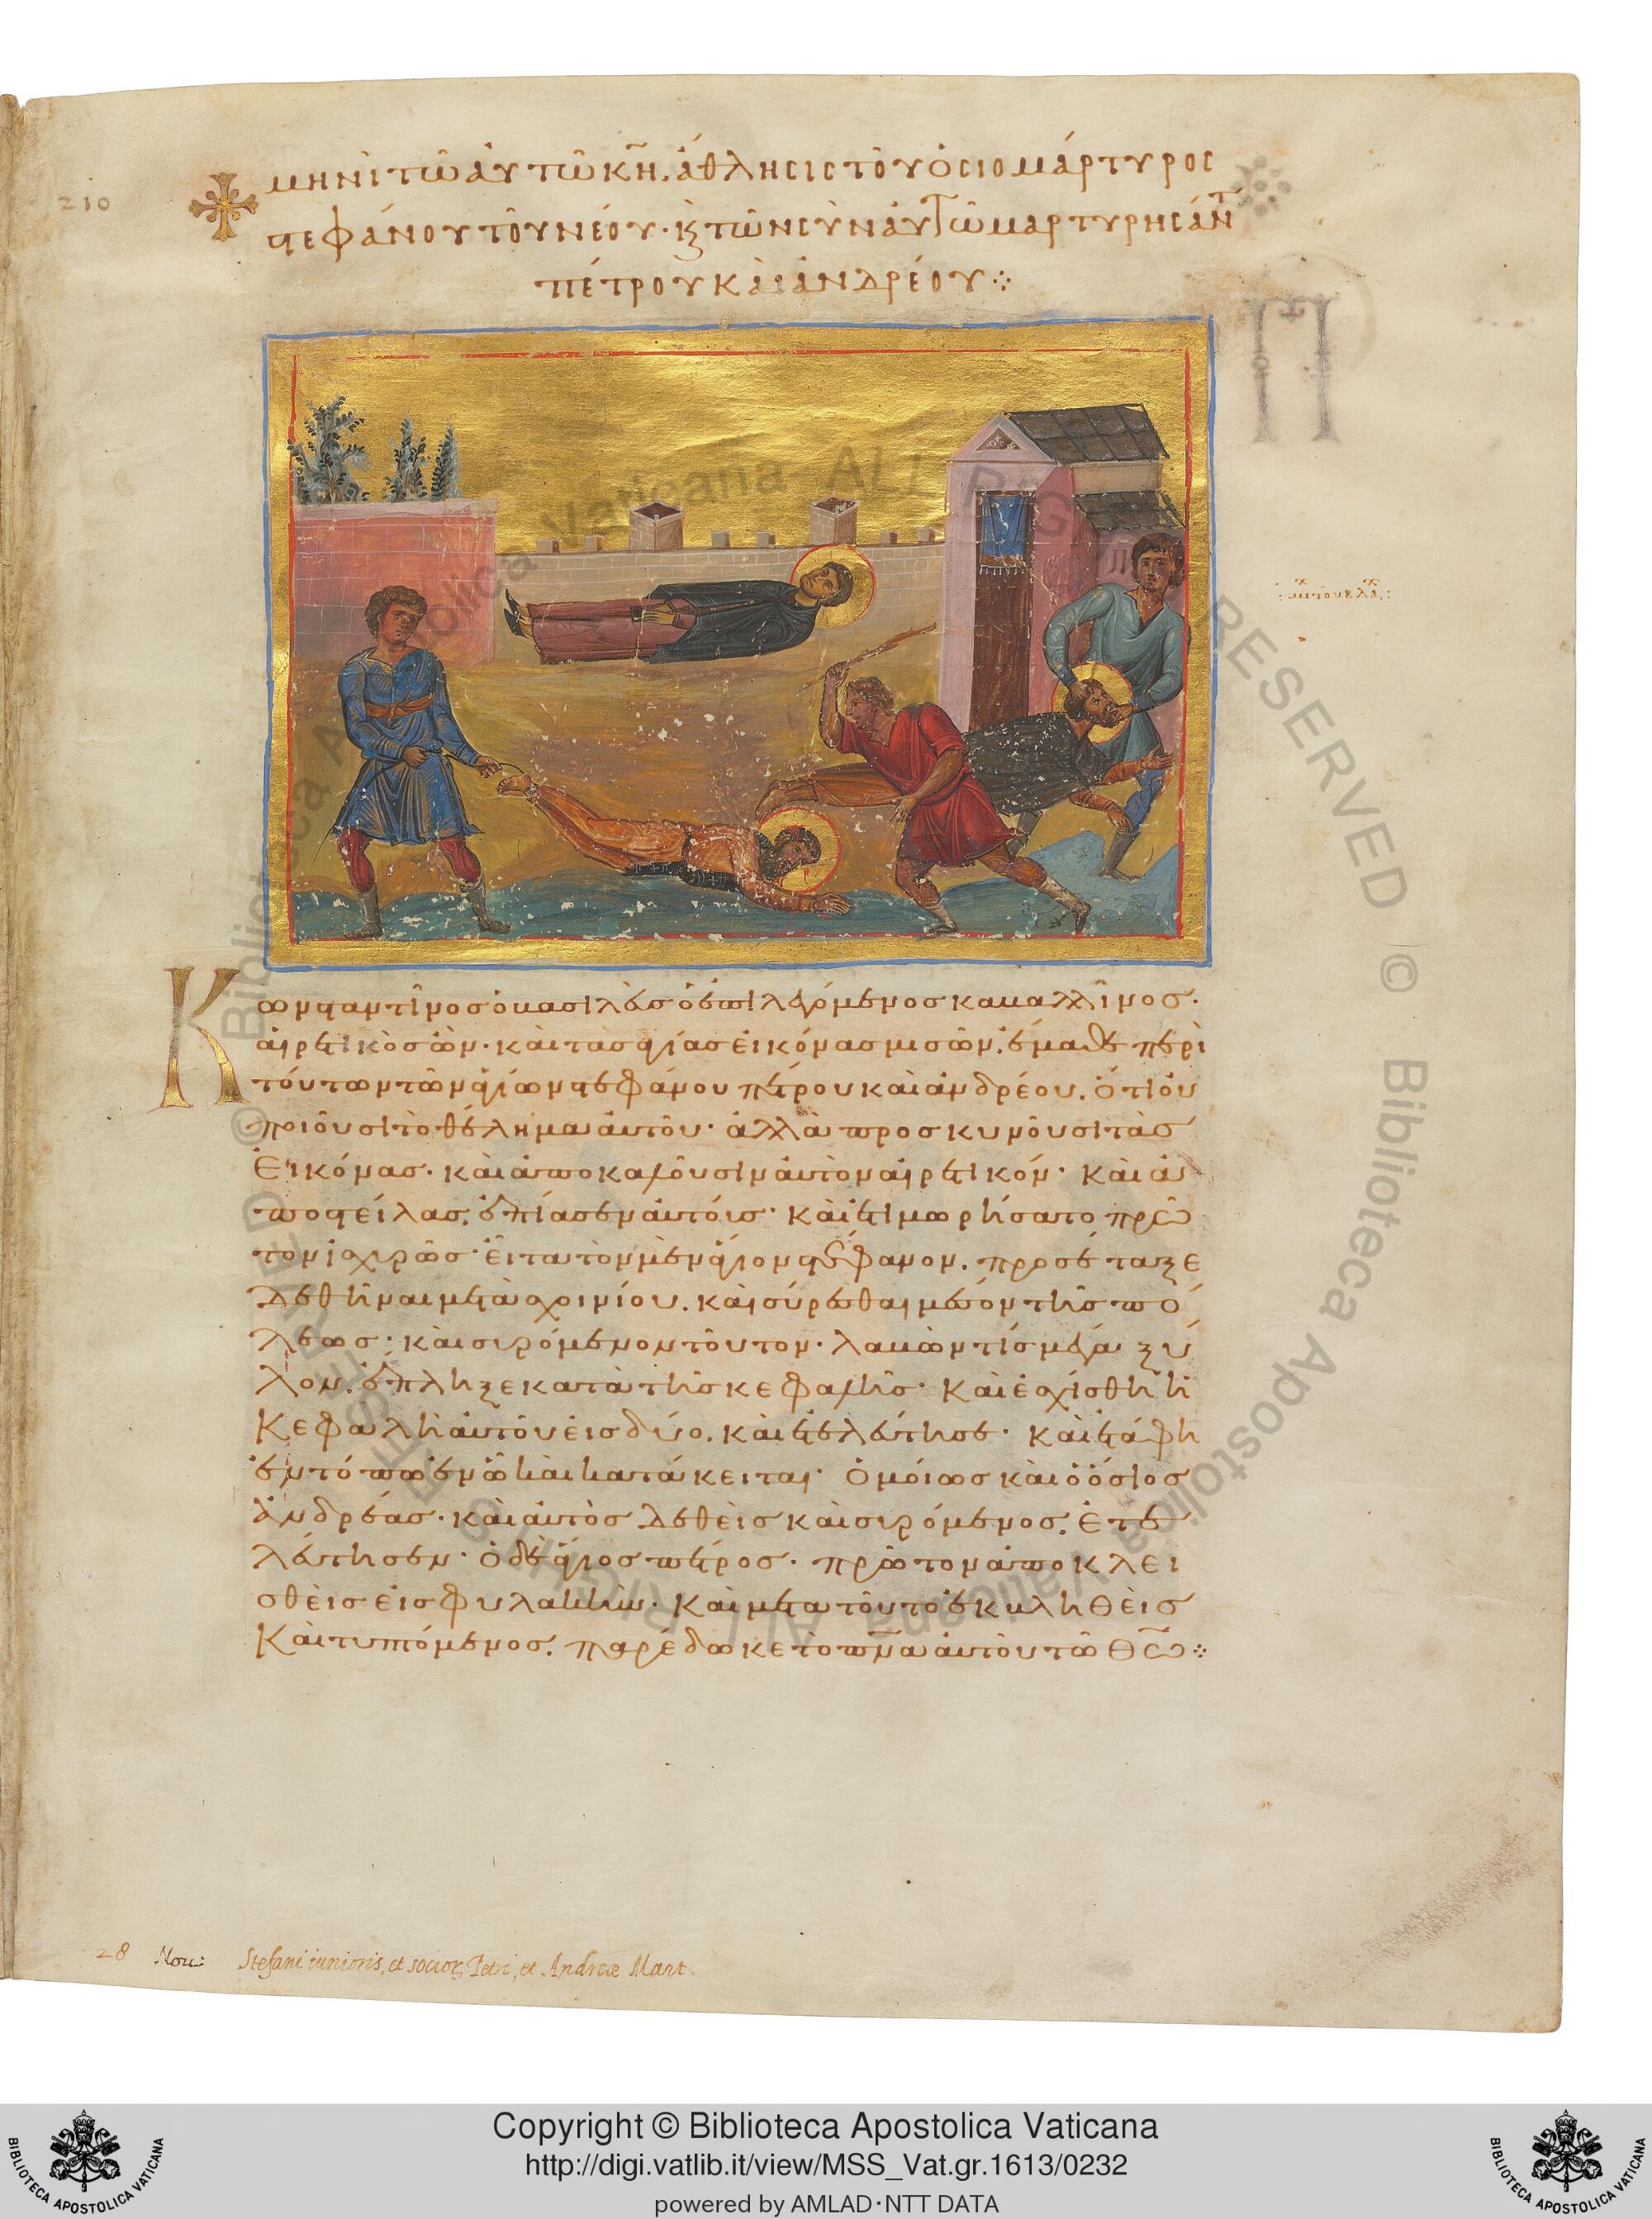 210
μηνὶ τῶ αὐτῶ κη̄. ἄθλησις τοῦ ὁσιομάρτυρος
στεφάνου τοῦ νέου· κ τῶν σὺν αὐτῶ μαρτυρησάντ
πέτρου καὶ ἀνδρέου ⁘
Κωνσταντῖνος ὁ βασιλεὺς ὁ ἐπιλεγόμενος καβαλλῖνος·
αἱρετικὸς ὢν· καὶ τὰς ἁγίας εἰκόνας μισῶν. ἔμαθε περὶ
τούτων τῶν ἁγίων στεφάνου πέτρου καὶ ἀνδρέου. ὅτι οὐ
ποιοῦσι τὸ θέλημα αὐτοῦ· ἀλλὰ προσκυνοῦσι τὰς
εἰκόνας· καὶ ἀποκαλοῦσιν αὐτὸν αἱρετικόν· καὶ ἀ
ποστείλας. ἐπίασεν αὐτούς· καὶ ἐτιμωρήσατο πρῶ
τον ἰσχυρῶς· εἶτα τὸν μὲν ἅγιον στέφανον. προσέταξε
δεθῆναι μετὰ σχοινίου. καὶ σύρεσθαι μέσον τῆς πό
λεως· καὶ συρόμενον τοῦτον· λαβών τίς μέγα ξύ
λον. ἔπληξε κατὰ τῆς κεφαλῆς· καὶ ἐσχίσθη ἡ
κεφαλὴ αὐτοῦ εἰς δύο. καὶ ἐτελεύτησε· καὶ ἐτάφη
ἐν τόπω ἐν ὧ καὶ κατάκειται· ὁμοίως καὶ ὁ ὅσιος
ἀνδρέας· καὶ αὐτὸς δεθεὶς καὶ συρόμενος. ἐτε
λεύτησεν· ὁ δὲ ἅγιος πέτρος· πρῶτον ἀποκλει
σθεὶς εἰς φυλακὴν· καὶ μετὰ τοῦτο ἐκβληθεὶς
καὶ τυπτόμενος. παρέδωκε τὸ πνα αὐτοῦ τῶ θω ⁘
28 Nou: Stefani iunioris, et socior Petri, et Andreæ Mart.
© Biblioteca Apostolica Vaticana ALL RIGHTS RESERVED © Biblioteca Apostolica Vaticana ALL RIGHTS RESERVED
Copyright © Biblioteca Apostolica Vaticana
http://digi.vatlib.it/view/MSS_Vat.gr.1613/0232
powered by AMLAD·NTT DATA
BIBLIOTECA APOSTOLICA VATICANA
BIBLIOTECA APOSTOLICA VATICANA